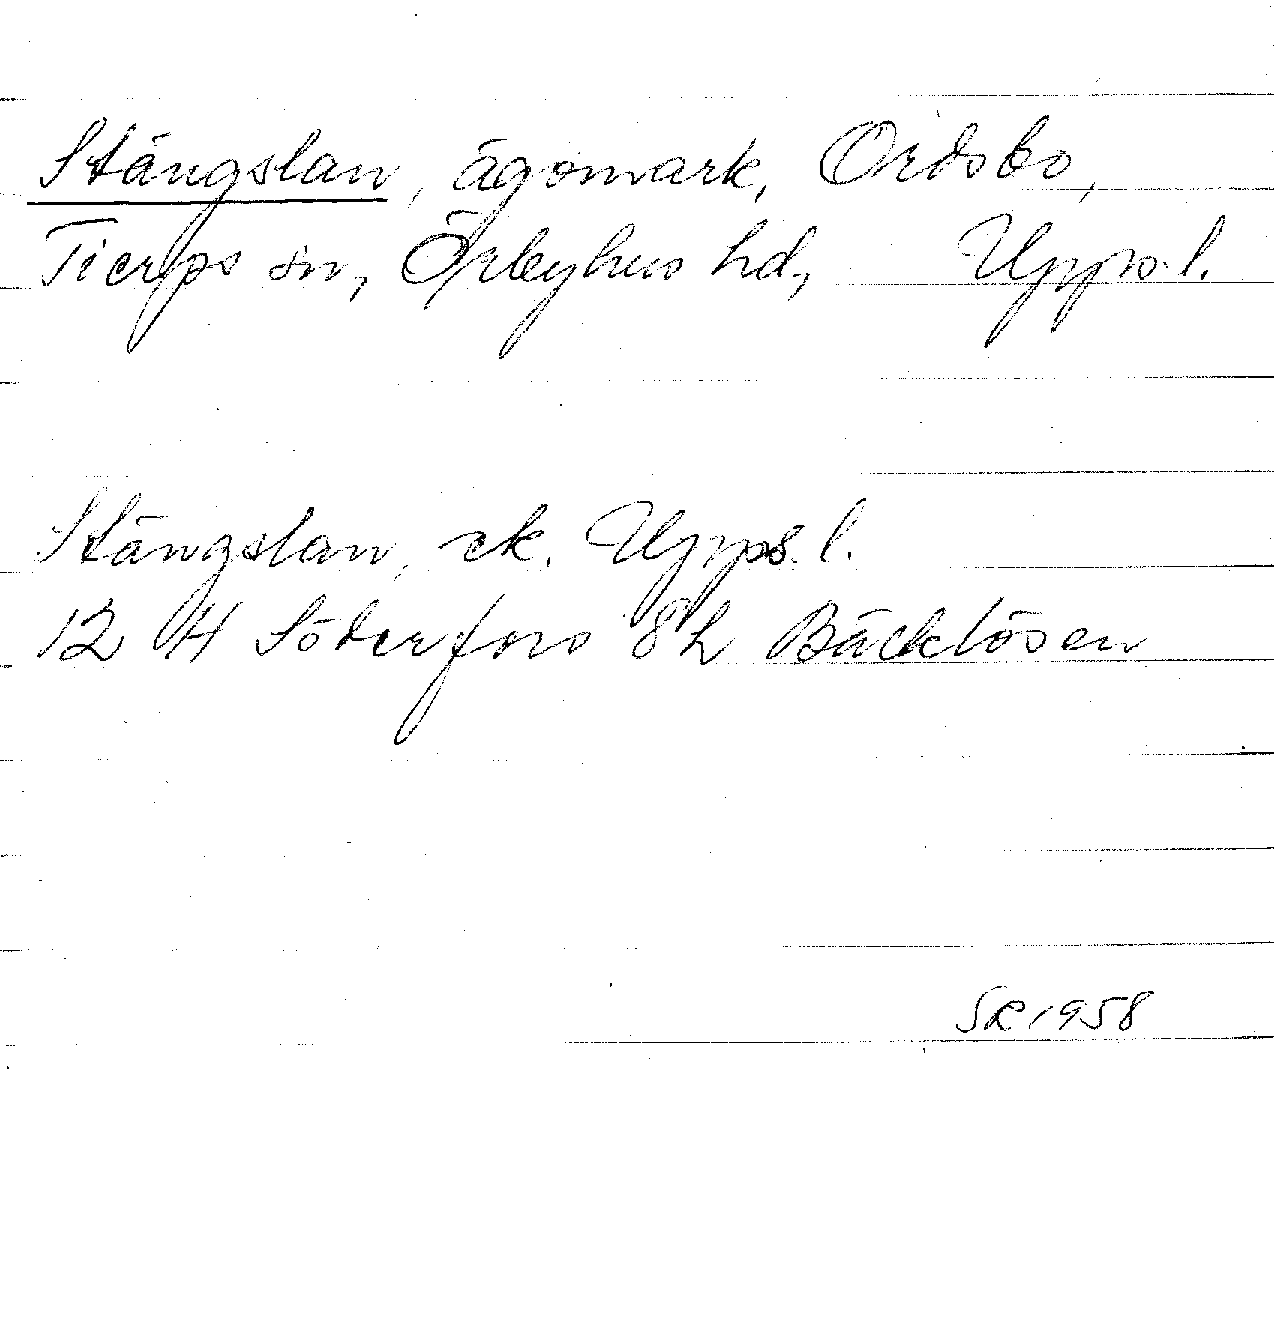 Stängslan, ägomark, Oidsbo,
Tierps sn, Örbyhus hd, Upps.l.
Stängslan, ek. Upps.l.
12 H Söderfors 8h Bäcklösen
SR 1958